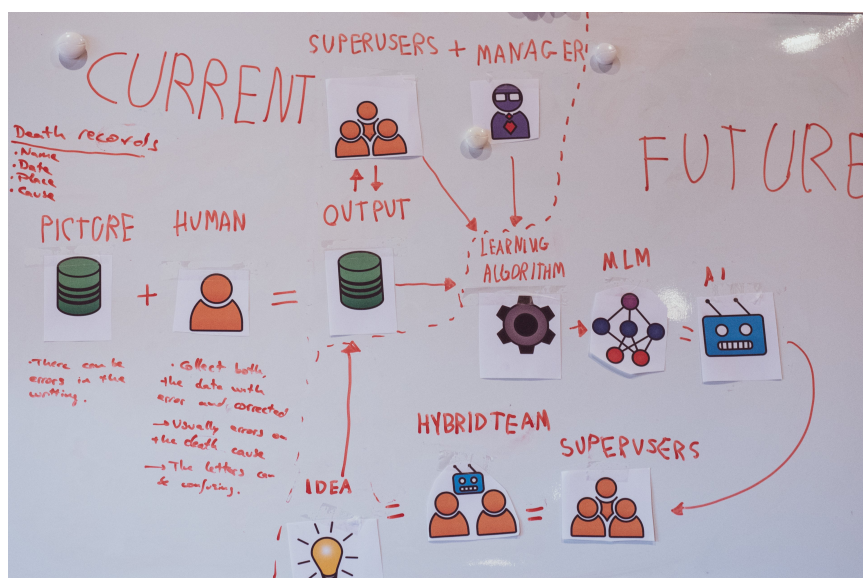 SUPERUSERS + MANAGER
CURRENT
FUTURE
Death records
• Name
• Date
• Place
• Cause
PICTURE
HUMAN
OUTPUT
+
=
LEARNING
ALGORITHM
MLM
AI
=
• There can be
errors in the
writting.
• Collect both,
the data with
error and corrected
→ Usually errors on
the death cause
→ The letters can
be confusing.
IDEA
=
HYBRID TEAM
=
SUPERUSERS